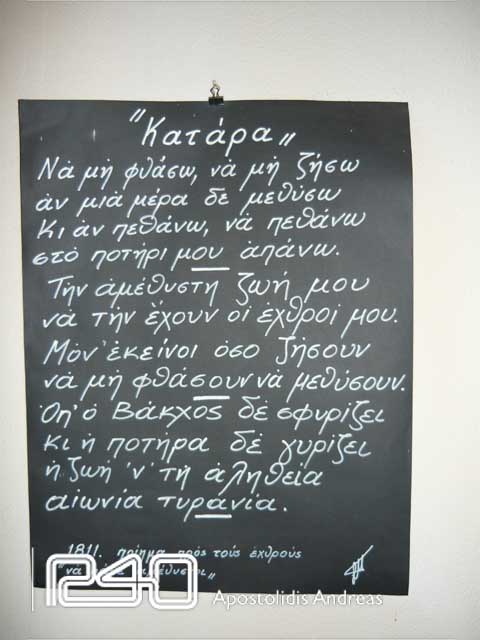 "Κατάρα"
Νὰ μὴ φθάσω, νὰ μὴ ζήσω
ἂν μιὰ μέρα δὲ μεθύσω
Κι ἂν πεθάνω, νὰ πεθάνω
στὸ ποτήρι μου ἀπάνω.
Τὴν ἀμέθυστη ζωή μου
νὰ τὴν ἔχουν οἱ ἐχθροί μου.
Μόν' ἐκεῖνοι ὅσο ζήσουν
νὰ μὴ φθάσουν νὰ μεθύσουν.
Ὅπ' ὁ Βάκχος δὲ σφυρίζει
κι ἡ ποτήρα δὲ γυρίζει
ἡ ζωὴ 'ν' τῇ ἀληθείᾳ
αἰωνία τυρανία.
1811. ποίημα πρὸς τοὺς ἐχθροὺς
240
Apostolidis Andreas